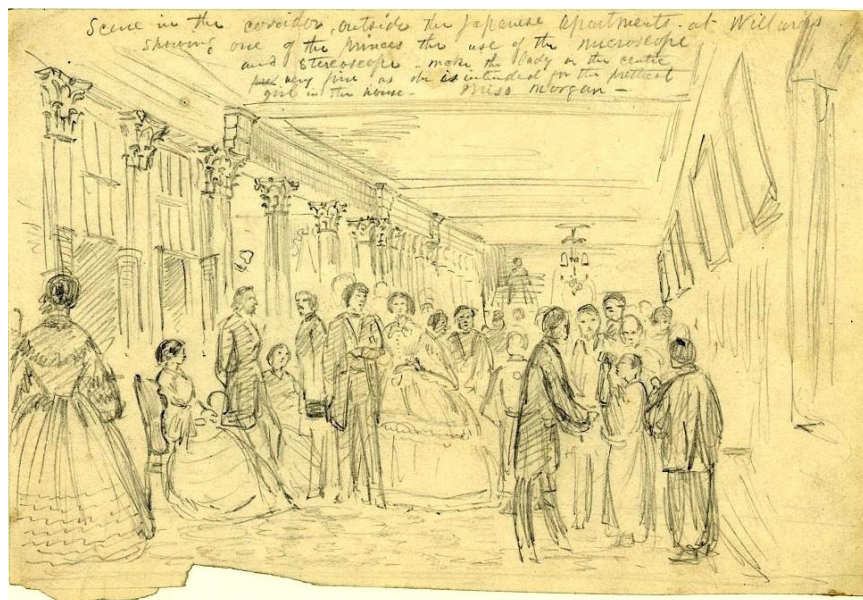 Scene in the corridor, outside the Japanese apartments - at Willards
showing one of the Princes the use of the microscope
and Stereoscope - make the lady in the centre
very fine as she is intended for the prettiest
girl in the house - Miss Morgan -